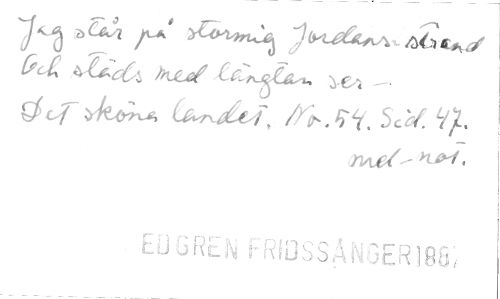 Jag står på stormig Jordans strand
Och städs med längtan ser –
Det sköna landet. No. 54. Sid. 47.
med not.
EDGREN FRIDSSÅNGER 1887